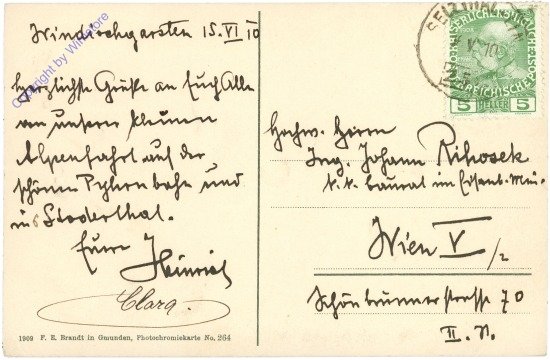 Windischgarsten 15.VI 10
herzlichste Grüße an Euch Alle
von unserer kleinen
Alpenfahrt auf der
schönen Pyhrnbahn und
ins Stoderthal.
Eure
Heinrich
Clara.
1909 F. E. Brandt in Gmunden, Photochromiekarte No. 264
Hochw. Herrn
Ing. Johann Rihosek
k. k. Baurat im Eisenb. Min.
Wien V/2
Schönbrunnerstrasse 70
II. St.
5 HELLER 5
SELZTHAL
Copyright by Winstore